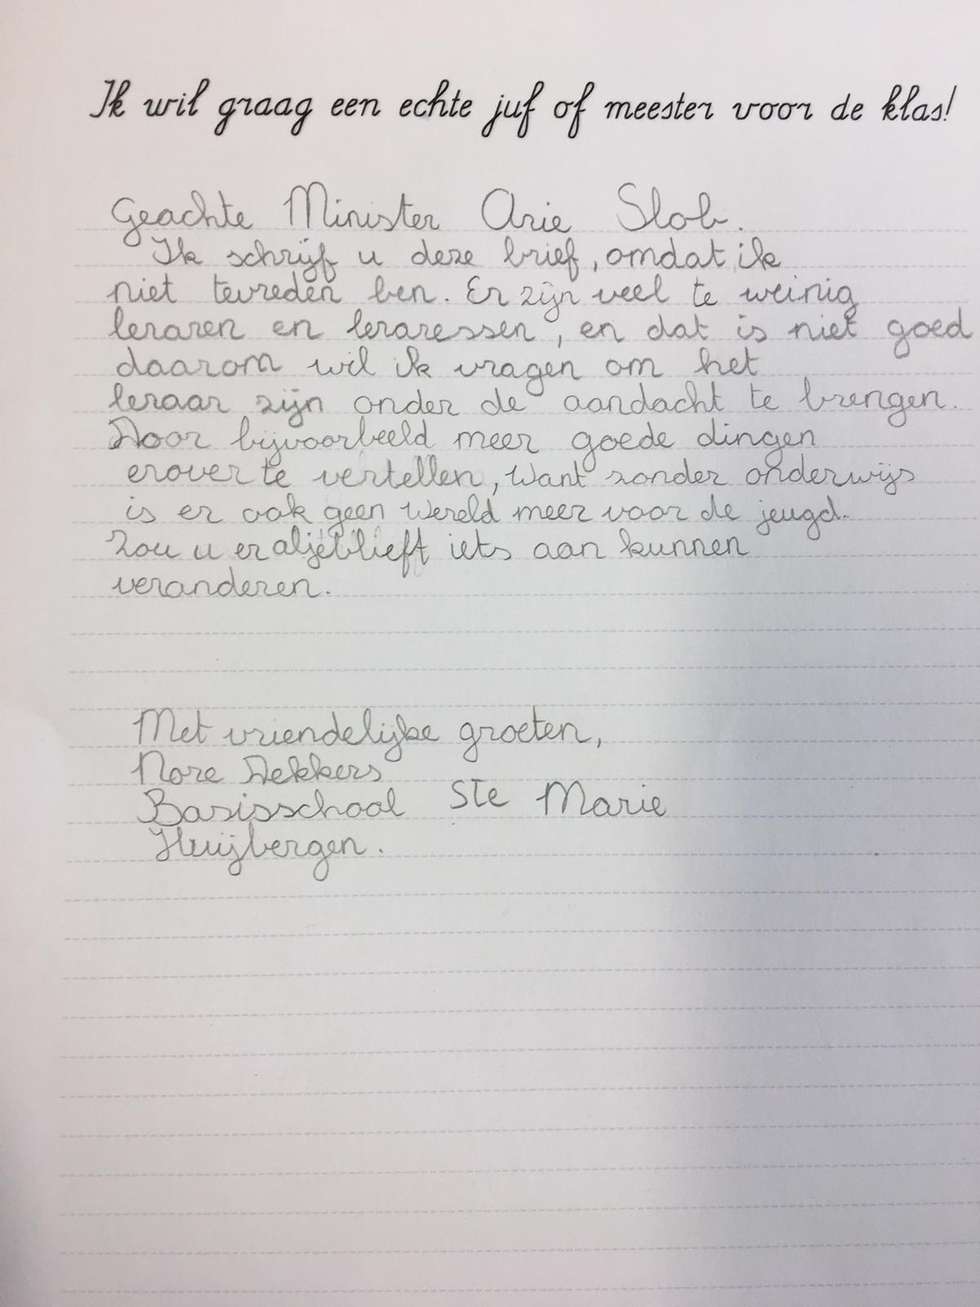 Ik wil graag een echte juf of meester voor de klas!
Geachte Minister Arie Slob.
Ik schrijf u deze brief, omdat ik
niet tevreden ben. Er zijn veel te weinig
leraren en leraressen, en dat is niet goed
daarom wil ik vragen om het
leraar zijn onder de aandacht te brengen.
Door bijvoorbeeld meer goede dingen
erover te vertellen, Want zonder onderwijs
is er ook geen Wereld meer voor de jeugd.
Zou u er aljeblieft iets aan kunnen
veranderen.
Met vriendelijke groeten,
Nore Dekkers
Basisschool Ste Marie
Huijbergen.